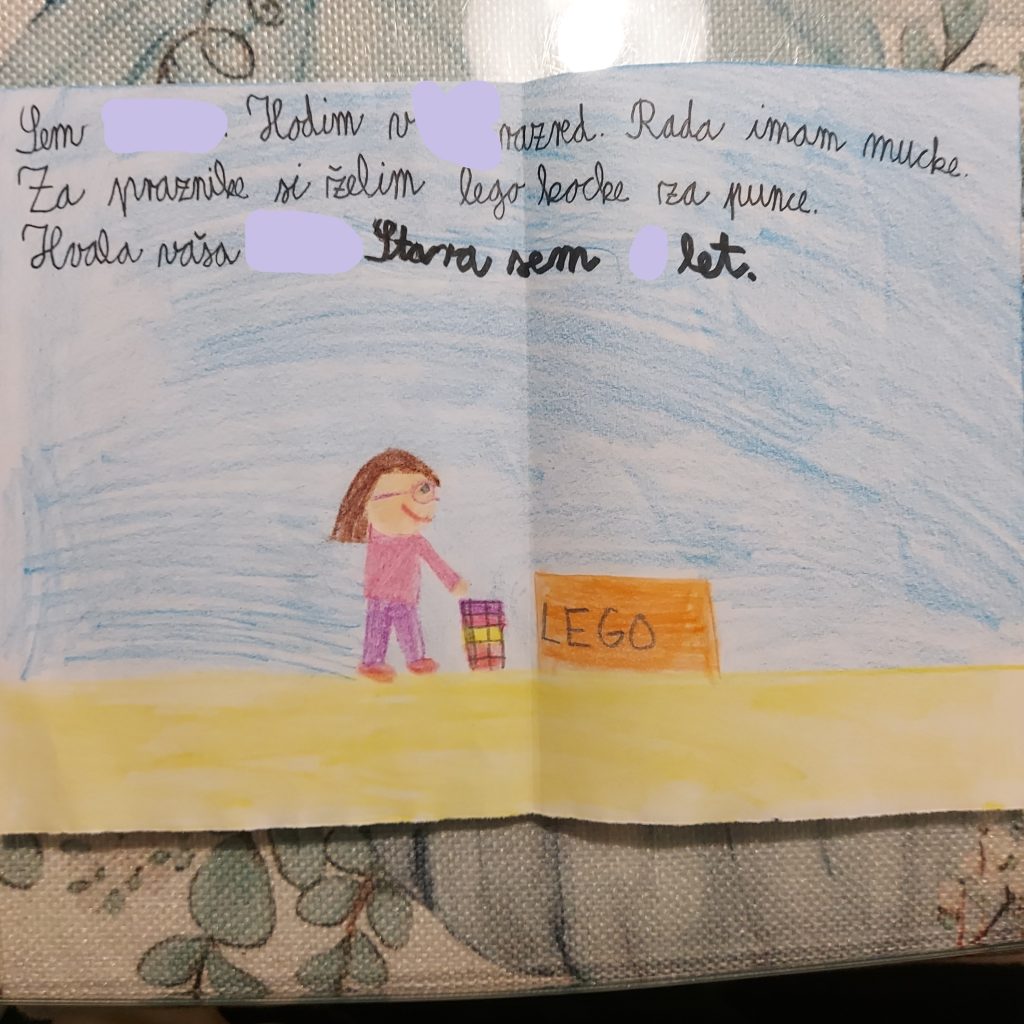 Sem . Hodim v razred. Rada imam mucke.
Za praznike si želim lego kocke za punce.
Hvala vaša Stara sem let.
LEGO